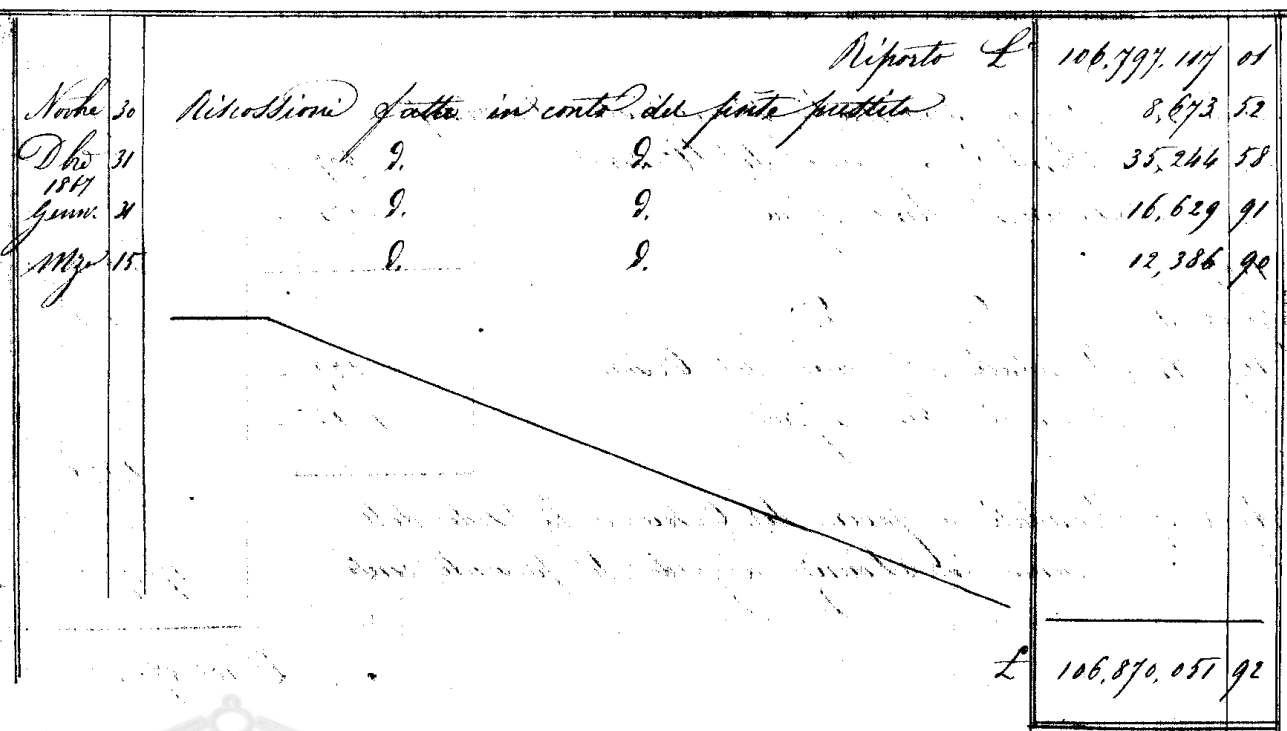 Riporto £ 106.797.117 01
Novbre 30 Riscossioni fatte in conto del prestito 8,673 52
Dbre 31 d. d. 35,244 58
Genn. 31 d. d. 16,629 91
Mzo 15 d. d. 12,386 90
£ 106.870.051 92